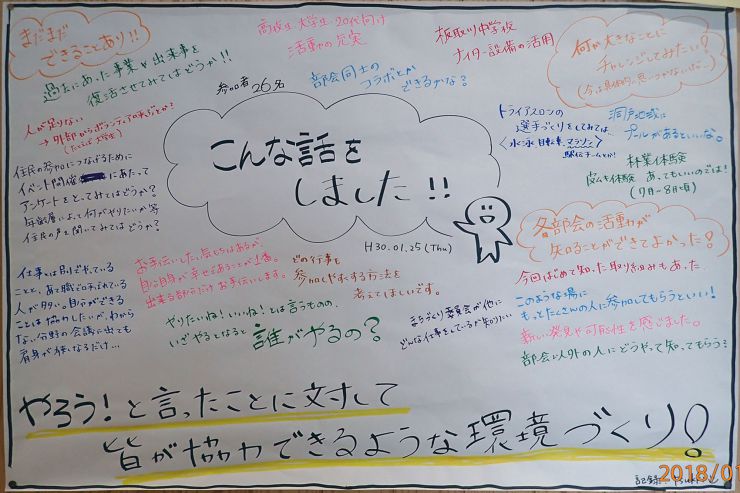 まだまだ
できることあり!!
過去にあった事業や出来事を
復活させてみてはどうか!!
高校生 大学生 20代向け
活動の充実
板取川中学校
ナイター設備の活用
部会同士の
コラボとか
できるかな?
何か大きなことに
チャレンジしてみたい?
参加者26名
こんな話を
しました!!
H30.01.25(Thu)
人が足りない
→外部からボランティア
住民の参加につなげるために
イベント開催にあたって
アンケートをとってみてはどうか?
年齢層によって何がやりたいか等
住民の声を聞いてみてはどうか?
トライアスロンの
選手づくりをしてみては、
水泳 自転車 マラソン
洞戸地域に
プールがあるといいな。
林業体験
皮むき体験 あってもいいのでは!
(7月~8月頃)
各部会の活動が
知ることができてよかった?
今回はじめて知った取り組みもあった
このような場に
もっとたくさんの人に参加してもらうといい!
新しい発見や可能性を感じました。
部会以外の人にどうやって知ってもらう?
お手伝いしたい気もちはあるが、
自分自身が幸せであることが1番。
出来る部分だけお手伝いします。
どの行事を
参加しやすくする方法を
考えてほしいです。
仕事は別でやっている
ことと、あて職で呼ばれている
人が多い。自らができる
ことは協力したいが、わから
ない分野の会議に出ても
肩身が狭くなるだけ…
やりたいね!いいね!とは言うものの、
いざやるとなると
誰がやるの?
まちづくり委員会が他に
どんな仕事をしているか知りたい
やろう!と言ったことに対して
皆が協力できるような環境づくり!
記録:
2018/01